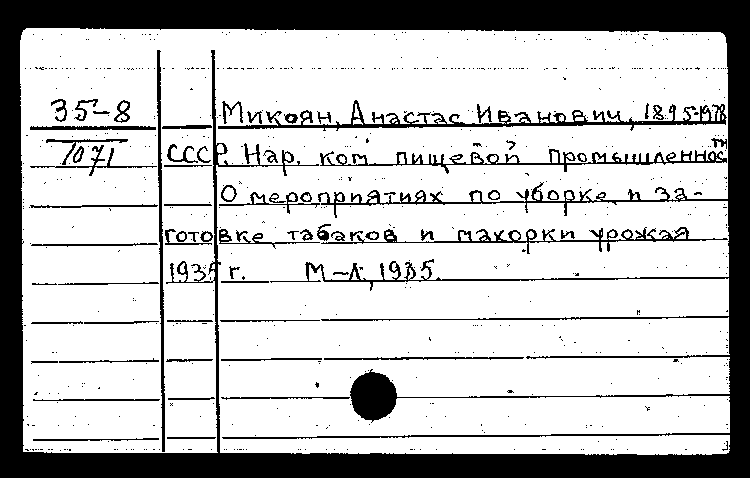 35-8
1071
Микоян, Анастас Иванович, 1895-1978
СССР. Нар. ком пищевой промышленности
О мероприятиях по уборке и за-
готовке табаков и махорки урожая
1935 г. М-Л, 1935.